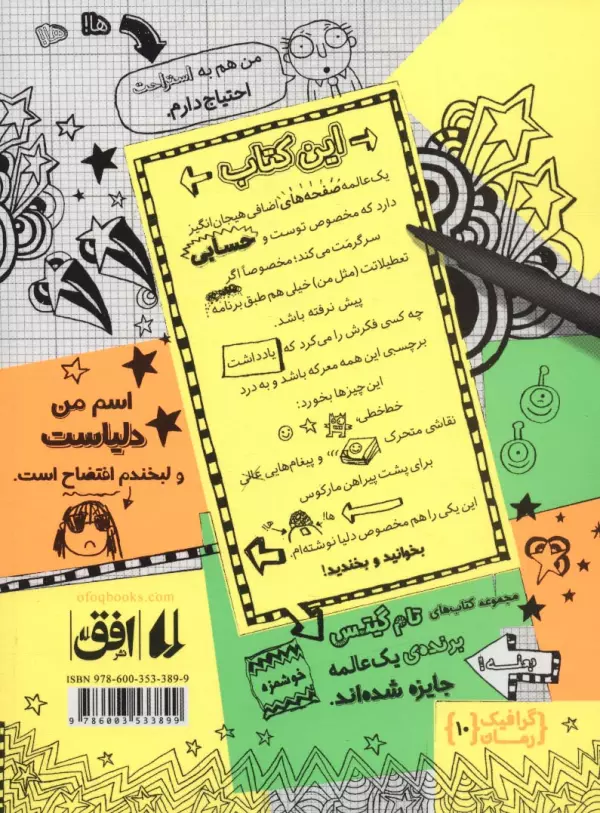 ها!
ها!
من هم به استراحت
احتیاج دارم.
این کتاب
یک عالمه صفحه‌های اضافی هیجان‌انگیز
دارد که مخصوص توست و حسابی
سرگرمت می‌کند؛ مخصوصاً اگر
تعطیلاتت (مثل من) خیلی هم طبق برنامه
پیش نرفته باشد.
چه کسی فکرش را می‌کرد که یادداشت
برچسبی این همه معرکه باشد و به درد
این چیزها بخورد:
خط‌خطی
نقاشی متحرک و پیغام‌هایی عالی
برای پشت پیراهن مارکوس
ها! ها!
این یکی را هم مخصوص دلیا نوشته‌ام.
بخوانید و بخندید!
اسم من
دلیاست
و لبخندم افتضاح است.
مجموعه کتاب‌های تام گیتس
برنده‌ی یک عالمه
جایزه شده‌اند.
خوشمزه
ofoqbooks.com
نشر افق
ISBN 978-600-353-389-9
9 786003 533899
گرافیک
رمان
۱۰